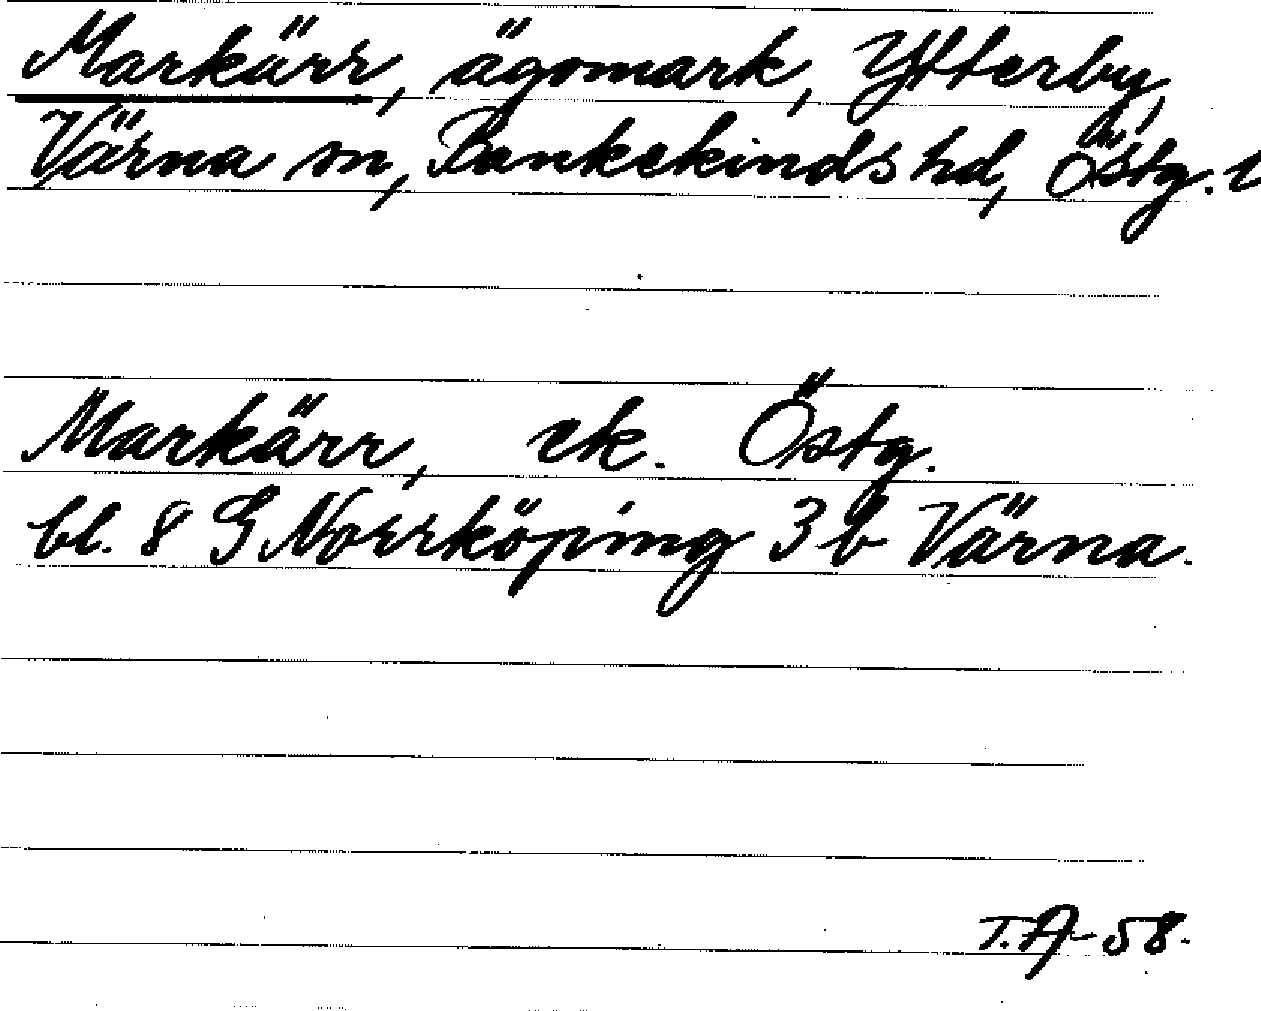 Markärr, ägomark, Ytterby,
Värna sn, Bankekinds hd, Östg. l
Markärr, ek. Östg.
bl. 8 G Norrköping 3 b Värna.
T.A-58.